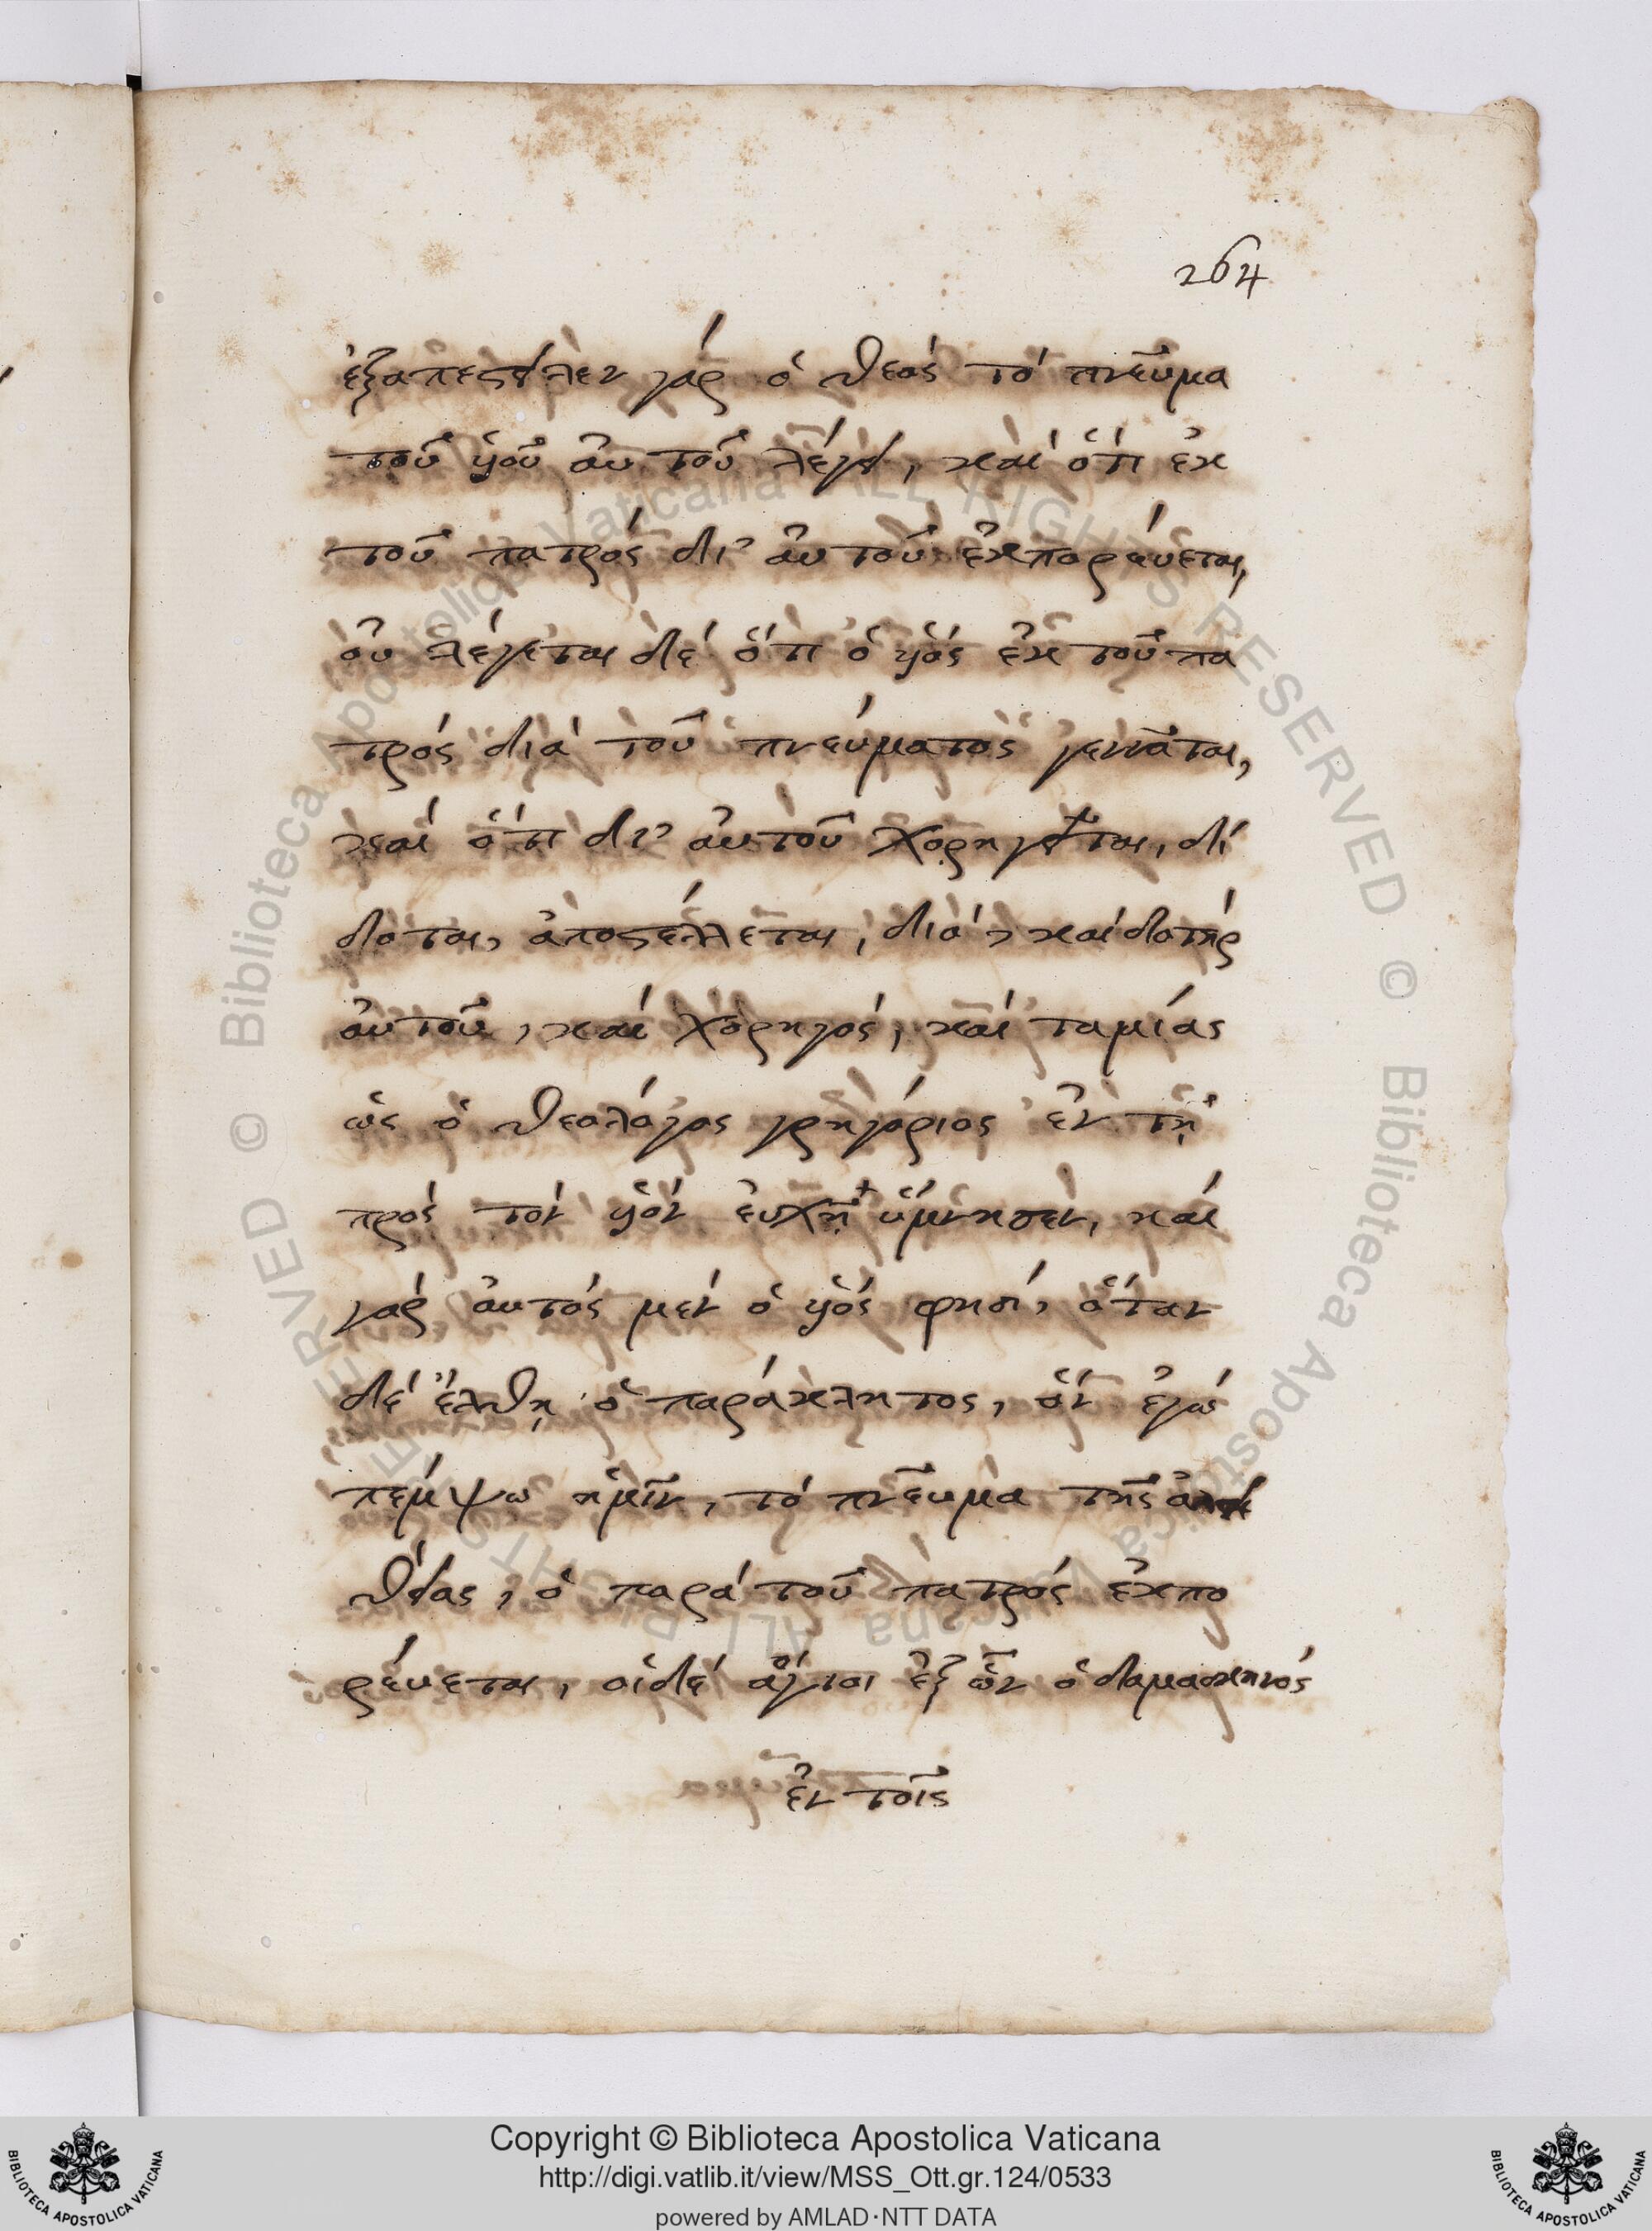 264
ἐξαπέστειλεν γάρ ὁ θεός τό πνεῦμα
τοῦ ὑιοῦ αὐτοῦ λέγει, καί ὅτι ἐκ
τοῦ πατρός δι' αὐτοῦ ἐκπορεύεται,
οὐ λέγεται δέ ὅτι ὁ ὑιός ἐκ τοῦ πα
τρός διά τοῦ πνεύματος γεννᾶται,
καί ὅτι δι' αὐτοῦ χορηγεῖται, δί
δοται, ἀποστέλλεται, διό, καί δοτήρ
αὐτοῦ, καί χορηγός, καί ταμίας
ὡς ὁ θεολόγος γρηγόριος ἐν τῇ
πρός τόν ὑιόν εὐχῇ ὕμνησεν, καί
γάρ αὐτός μέν ὁ ὑιός φησί, ὅταν
δέ ἔλθῃ ὁ παράκλητος, ὅν ἐγώ
πέμψω ἡμῖν, τό πνεῦμα τῆς ἀλη
θείας, ὁ παρά τοῦ πατρός ἐκπο
ρεύεται, οἱ δέ ἅγιοι ἐξ ὧν ὁ δαμασκηνός
ἐν τοῖς
Copyright © Biblioteca Apostolica Vaticana
http://digi.vatlib.it/view/MSS_Ott.gr.124/0533
powered by AMLAD·NTT DATA
BIBLIOTECA APOSTOLICA VATICANA
BIBLIOTECA APOSTOLICA VATICANA
© Biblioteca Apostolica Vaticana ALL RIGHTS RESERVED
© Biblioteca Apostolica Vaticana ALL RIGHTS RESERVED